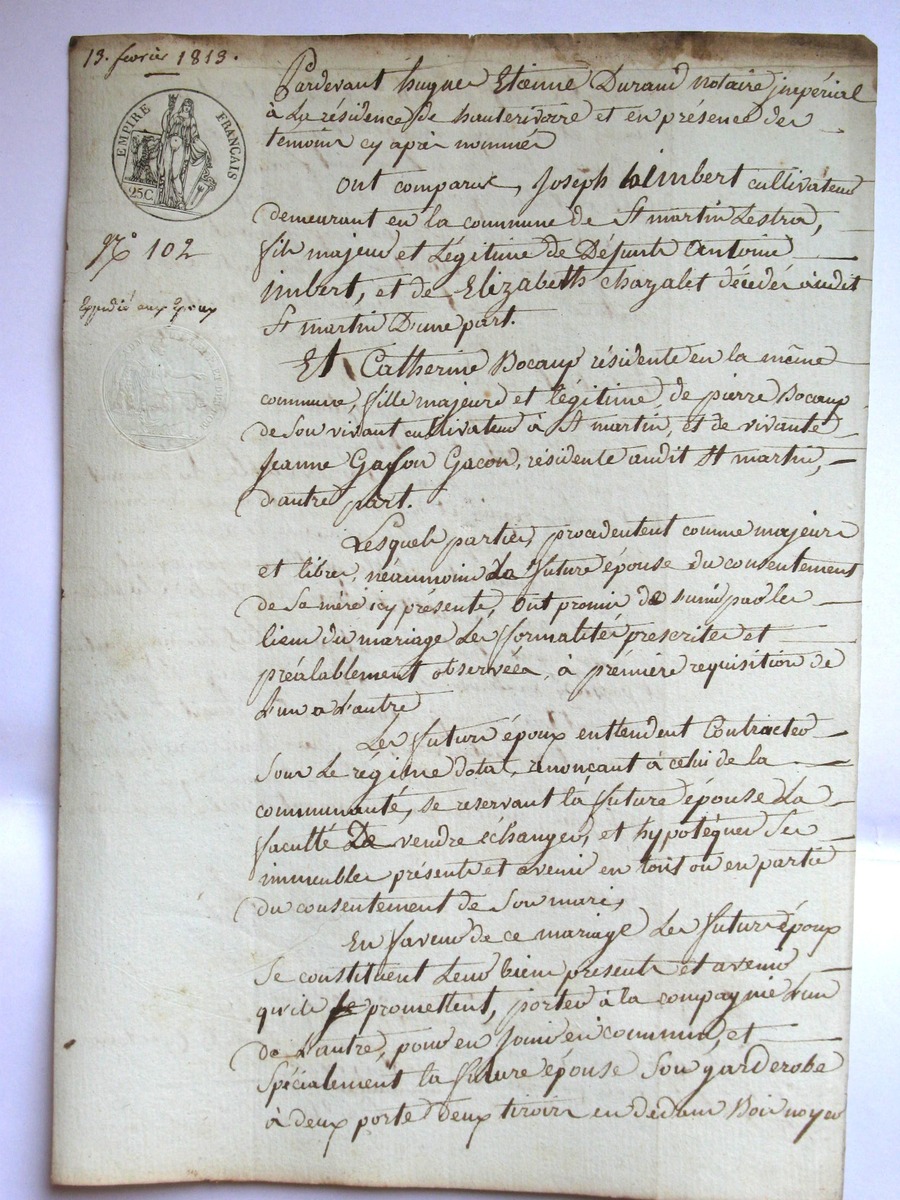 13. fevrier 1813.
EMPIRE FRANÇAIS
25C.
N.° 102
Expedié aux Epoux
Pardevant hugues Etienne Durand notaire jmpérial
à La résidence de hauterivoire et en présence des
temoins cy après nommés
Ont comparus, Joseph imbert cultivateur
demeurant en la commune de St martin Lestra,
fils majeur et Légitime de Défunts antoine
jmbert, et de Elizabeth Chazalet décédés audit
St martin D'une part.
Et Catherine Bocoup résidente en la même
commune, fille majeure et légitime de pierre Bocoup
de son vivant cultivateur à St martin, et de vivante
Jeanne Gacon, résidente audit St martin,
d'autre part.
Lesquels parties, procedentent comme majeurs
et libres, néanmoins La future épouse du consentement
de Sa mère icy présente, Ont promis de s'unir par les
liens du mariage Les formalités prescrites et
préalablement observées, à première requisition de
L'un a L'autre
Les futurs époux enttendent Contracter
Sous Le régime dotal, renonçant à celui de la
communauté, se reservant la future épouse La
faculté De vendre échanger, et hypotéquer Ses
immeubles présents et avenir en tout ou en partie
du consentement de Son mari,
En faveur de ce mariage Les futurs époux
Se constituent Leurs biens présents et avenir
qu'ils promettent, porter à la compagnie L'un
de L'autre, pour en Jouir en commun, et
Spécialement la future épouse Son garderobe
à deux portes deux tiroirs en dedans Bois noyer